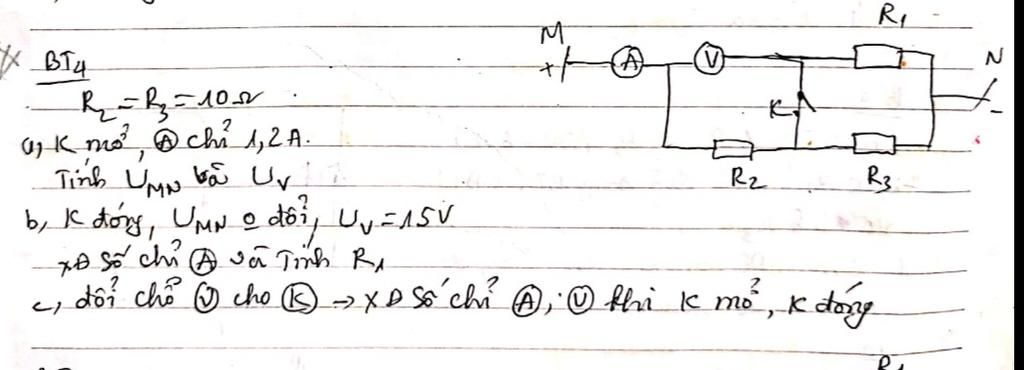 BT4
R2 = R3 = 10Ω
a, K mở, Ⓐ chỉ 1,2A.
Tính UMN và UV
b, K đóng, UMN o đổi, UV = 15V
XĐ số chỉ Ⓐ và Tính R1
c, đổi chỗ Ⓥ cho Ⓚ → XĐ số chỉ Ⓐ, Ⓥ khi K mở, K đóng
R1
M
N
+
A
V
-
K
R2
R3
R1